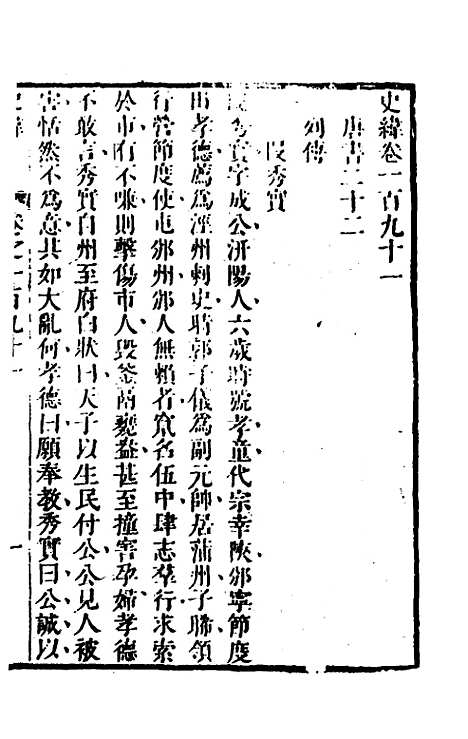 史緯卷一百九十一
唐書二十二
列傳
段秀實
段秀實字成公汧陽人六歲時號孝童代宗幸陝邠寧節度
白孝德薦爲涇州刺史時郭子儀爲副元帥居蒲州子晞領
行營節度使屯邠州邠人無賴者竄名伍中肆志羣行求索
於市有不嗛則擊傷市人毀釜鬲甕盎甚至撞害孕婦孝德
不敢言秀實自州至府白狀曰天子以生民付公公見人被
害恬然不爲意其如大亂何孝德曰願奉教秀實曰公誠以
史緯 卷之一百九十一 一